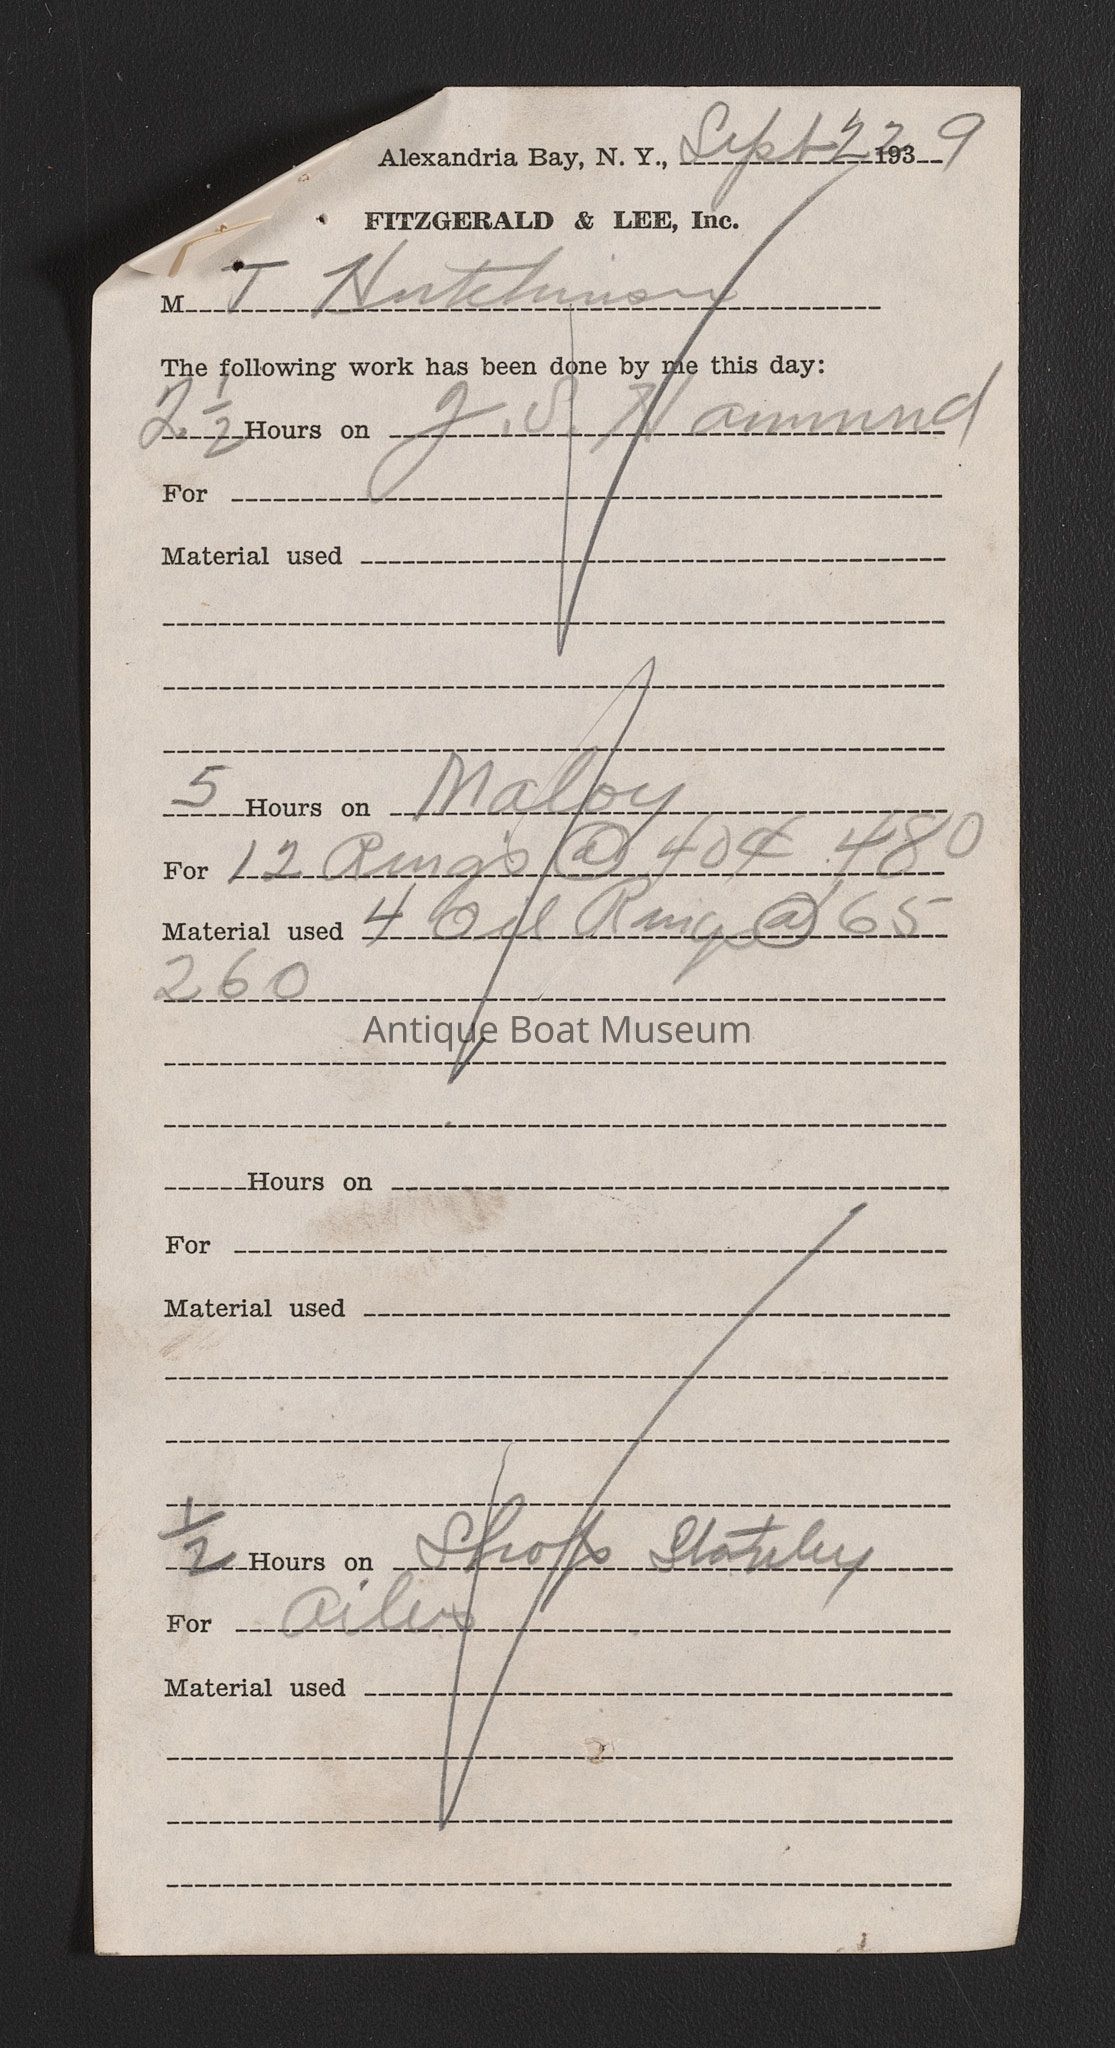 Alexandria Bay, N. Y., Sept 22 1939
FITZGERALD & LEE, Inc.
M T Hutchinson
The following work has been done by me this day:
2 1/2 Hours on J. S. Hammond
For
Material used
5 Hours on Maloy
For 12 Rings @ 40¢ 480
Material used 4 Oil Rings @ 65
260
Antique Boat Museum
Hours on
For
Material used
1/2 Hours on Shop
For Oilers
Material used